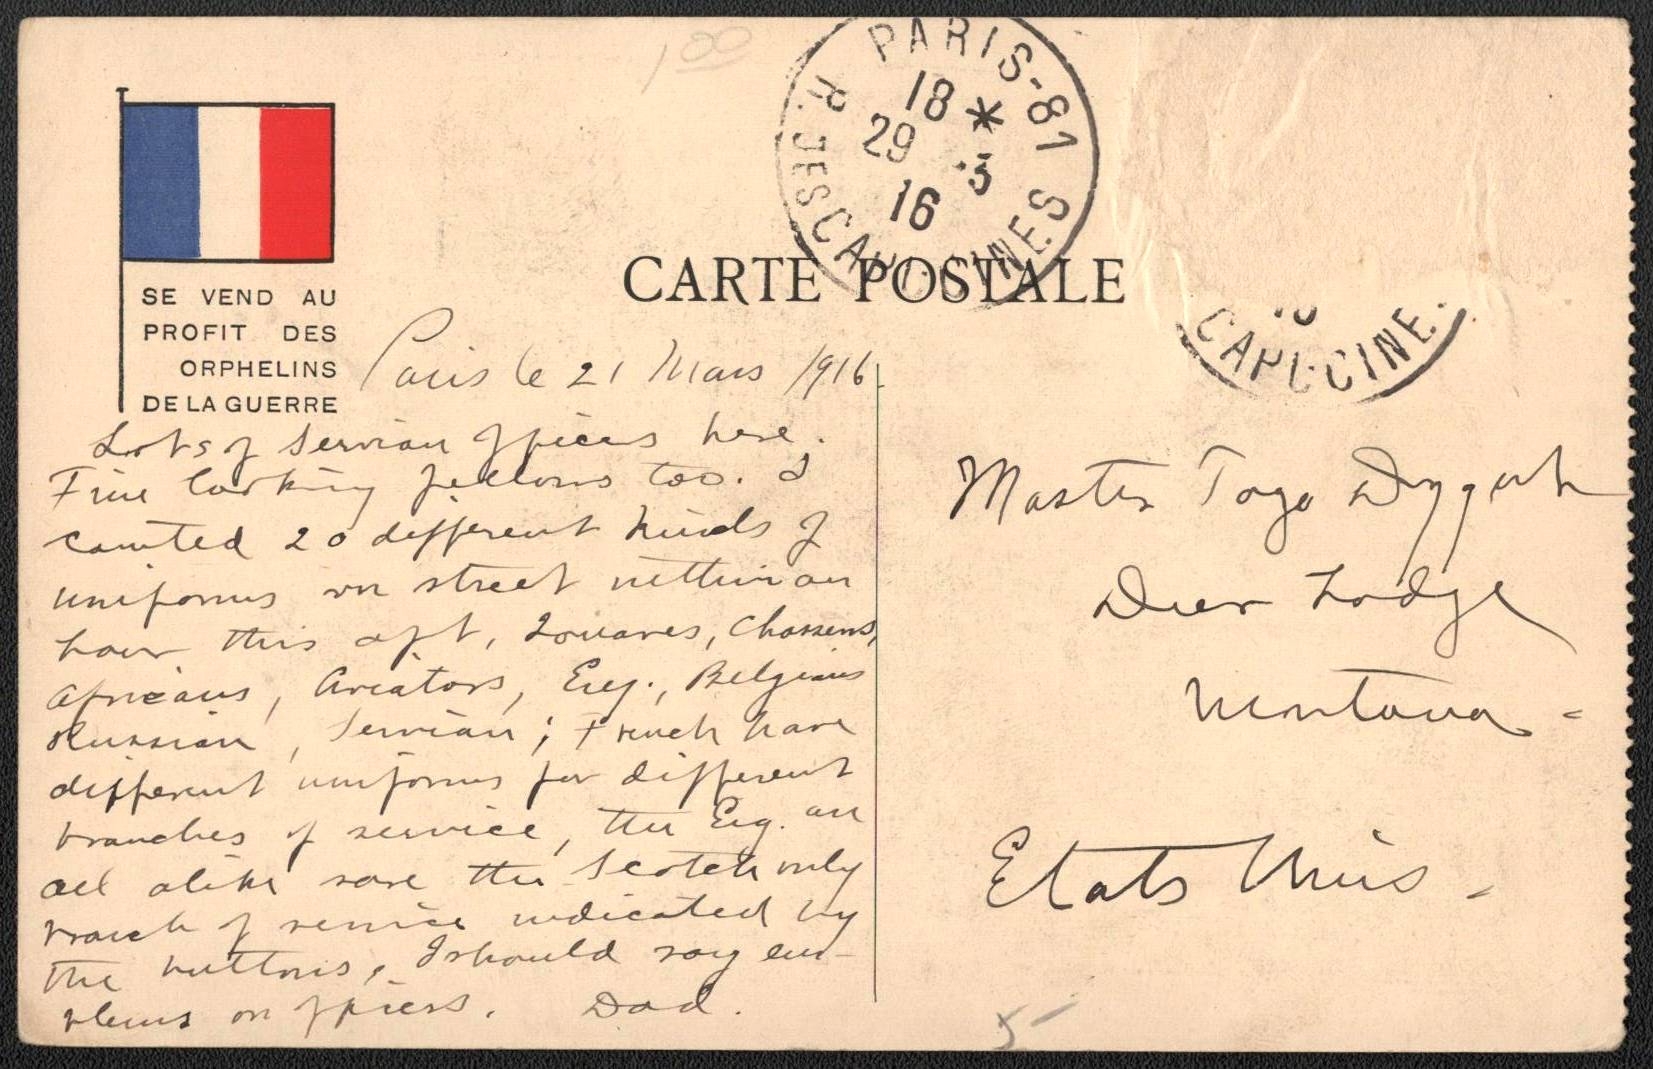 1 00
PARIS-81
R. DES CAPUCINES
18 *
29 -3
16
CAPUCINE
SE VEND AU
PROFIT DES
ORPHELINS
DE LA GUERRE
CARTE POSTALE
Paris le 21 Mars 1916.
Lots of Servian officers here.
Fine looking fellows too. I
counted 20 different kinds of
uniforms on street within an
hour this aft, Zouaves, Chasseurs,
Africans, Aviators, Eng., Belgians
Russian, Servian; French have
different uniforms for different
branches of service, the Eng. are
all alike save the Scotch only
branch of service indicated by
the buttons, I should say em-
blems on officers. Dad.
Master Togo Dygert
Deer Lodge
Montana -
Etats Unis -
5-